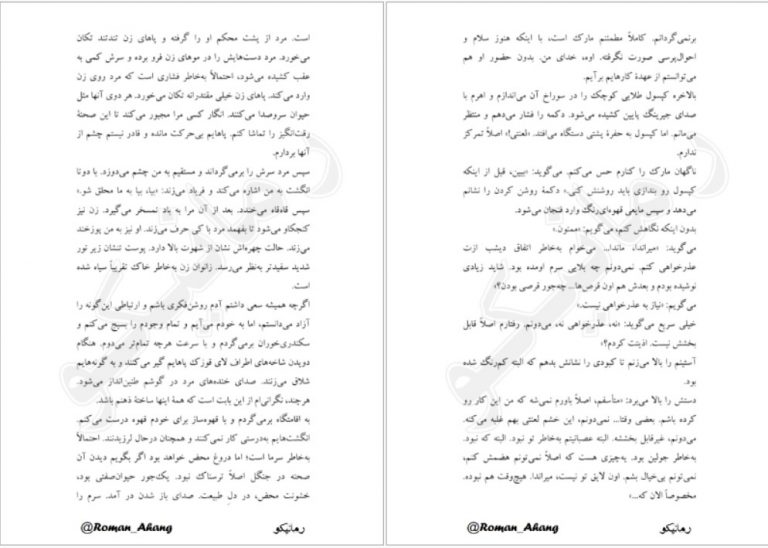 است. مرد از پشت محکم او را گرفته و پاهای زن تندتند تکان
می‌خورد. مرد دست‌هایش را در موهای زن فرو برده و سرش کمی به
عقب کشیده می‌شود، احتمالاً به‌خاطر فشاری است که مرد روی زن
وارد می‌کند. پاهای زن خیلی مقتدرانه تکان می‌خورد. هر دوی آنها مثل
حیوان سروصدا می‌کنند. انگار کسی مرا مجبور می‌کند تا این صحنهٔ
رقت‌انگیز را تماشا کنم. پاهایم بی‌حرکت مانده و قادر نیستم چشم از
آنها بردارم.
سپس مرد سرش را برمی‌گرداند و مستقیم به من چشم می‌دوزد. با دوتا
انگشت به من اشاره می‌کند و فریاد می‌زند: «بیا، بیا به ما محلق شو.»
سپس قاه‌قاه می‌خندد. بعد از آن مرا به باد تمسخر می‌گیرد. زن نیز
کنجکاو می‌شود تا بفهمد مرد با کی حرف می‌زند. او نیز به من پوزخند
می‌زند. حالت چهره‌اش نشان از شهوت بالا دارد. پوست تنشان زیر نور
شدید سفیدتر به‌نظر می‌رسد. زانوان زن به‌خاطر خاک تقریباً سیاه شده
است.
اگرچه همیشه سعی داشتم آدم روشن‌فکری باشم و ارتباطی این‌گونه را
آزاد می‌دانستم، اما به خودم می‌آیم و تمام وجودم را بسیج می‌کنم و
سکندری‌خوران برمی‌گردم و با سرعت هرچه تمام‌تر می‌دوم. هنگام
دویدن شاخه‌های اطراف لای قوزک پاهایم گیر می‌کنند و به گونه‌هایم
شلاق می‌زنند. صدای خنده‌های مرد در گوشم طنین‌انداز می‌شود.
هرچند، نگرانی‌ام از این بابت است که همهٔ اینها ساختهٔ ذهنم باشد.
به اقامتگاه برمی‌گردم و با قهوه‌ساز برای خودم قهوه درست می‌کنم.
انگشت‌هایم به‌درستی کار نمی‌کنند و همچنان درحال لرزیدنند. احتمالاً
به‌خاطر سرما است؛ اما دروغ محض خواهد بود اگر بگویم دیدن آن
صحنه در جنگل اصلاً ترسناک نبود. یک‌جور حیوان‌صفتی بود،
خشونت محض، در دلِ طبیعت. صدای باز شدن در آمد. سرم را
رمانیکو @Roman_Ahang
برنمی‌گردانم. کاملاً مطمئنم مارک است، با اینکه هنوز سلام و
احوال‌پرسی صورت نگرفته. اوه، خدای من. بدون حضور او هم
می‌توانستم از عهدهٔ کارهایم برآیم.
بالاخره کپسول طلایی کوچک را در سوراخ آن می‌اندازم و اهرم با
صدای جیرینگ پایین کشیده می‌شود. دکمه را فشار می‌دهم و منتظر
می‌مانم. اما کپسول به حفرهٔ پشتی دستگاه می‌افتد. «لعنتی!» اصلاً تمرکز
ندارم.
ناگهان مارک را کنارم حس می‌کنم. می‌گوید: «ببین، قبل از اینکه
کپسول رو بندازی باید روشنش کنی.» دکمهٔ روشن کردن را نشانم
می‌دهد و سپس مایعی قهوه‌ای‌رنگ وارد فنجان می‌شود.
بدون اینکه نگاهش کنم، می‌گویم: «ممنون.»
می‌گوید: «میراندا، ماندا... می‌خوام به‌خاطر اتفاق دیشب ازت
عذرخواهی کنم. نمی‌دونم چه بلایی سرم اومده بود. شاید زیادی
نوشیده بودم و بعدش هم اون قرص‌ها... چه‌جور قرصی بودن؟»
می‌گویم: «نیاز به عذرخواهی نیست.»
خیلی سریع می‌گوید: «نه، عذرخواهی نه، می‌دونم. رفتارم اصلاً قابل
بخشش نیست. اذیتت کردم؟»
آستینم را بالا می‌زنم تا کبودی را نشانش بدهم که البته کم‌رنگ شده
بود.
دستش را بالا می‌برد: «متأسفم، اصلاً باورم نمی‌شه که من این کار رو
کرده باشم. بعضی وقتا... نمی‌دونم، این خشم لعنتی بهم غلبه می‌کنه.
می‌دونم، غیرقابل بخششه. البته عصبانیتم به‌خاطر تو نبود. البته که نبود.
به‌خاطر جولین بود. یه‌چیزی هست که اصلاً نمی‌تونم هضمش کنم،
نمی‌تونم بی‌خیال بشم. اون لایق تو نیست، میراندا. هیچ‌وقت هم نبوده.
مخصوصاً الان که...»
رمانیکو @Roman_Ahang